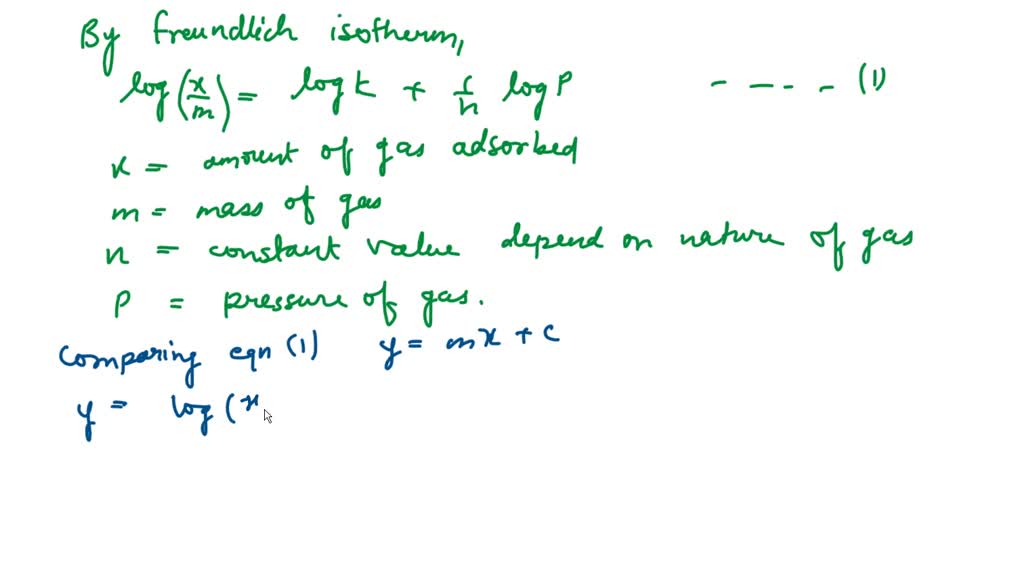 By Freundlich isotherm,
log(x/m) = log k + 1/n log P - - - - (1)
x = amount of gas adsorbed
m = mass of gas
n = constant value depend on nature of gas
P = pressure of gas.
Comparing eqn (1) y = mx + c
y = log (x